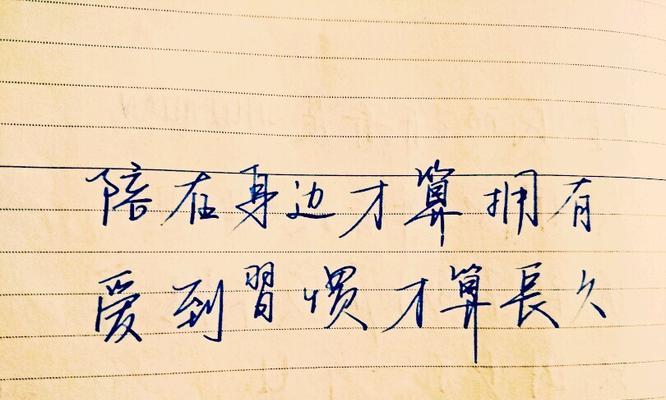 陪在身边才算拥有
爱到習惯才算長久